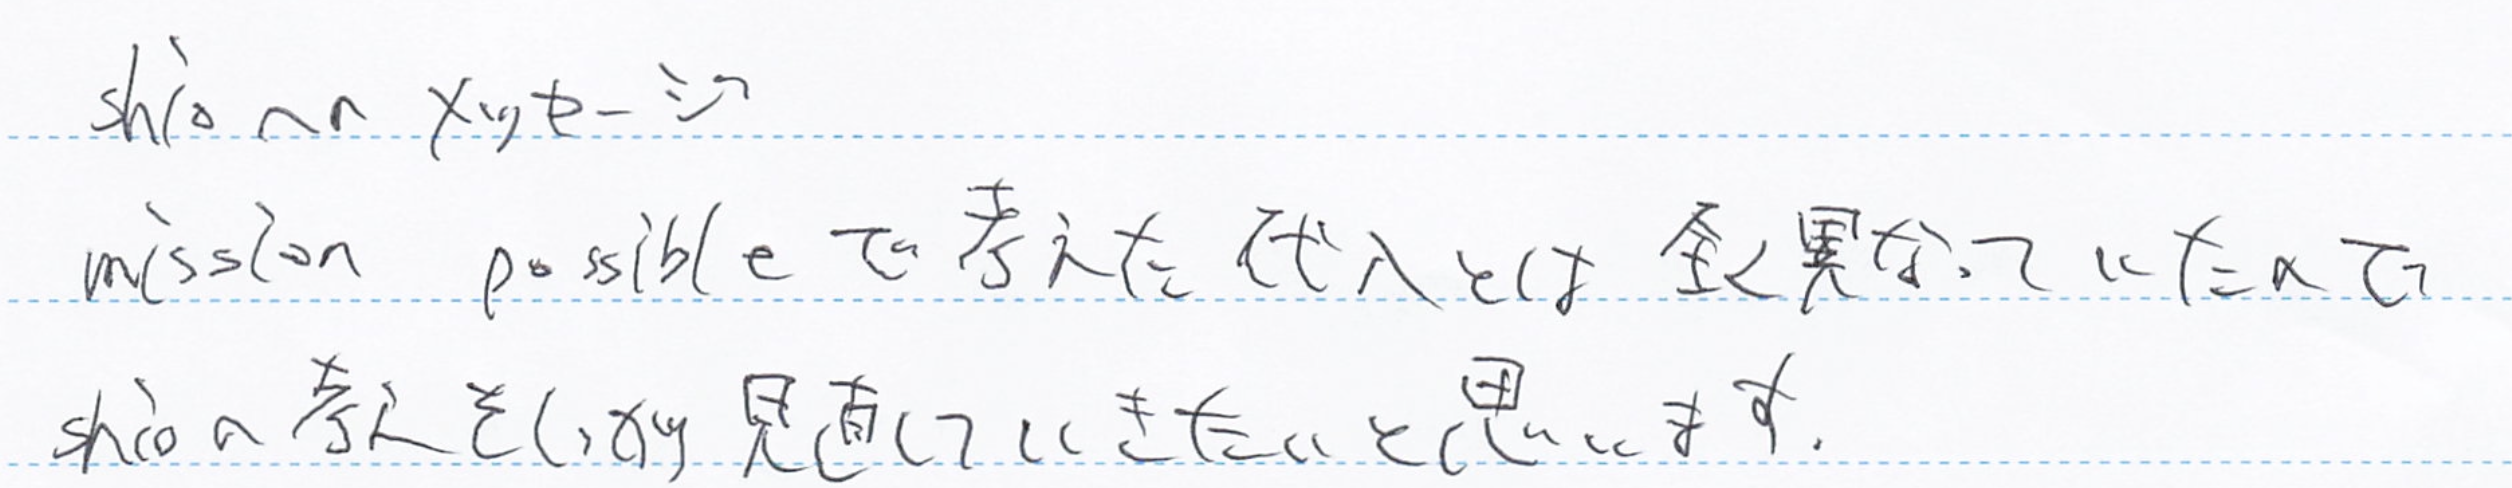 shioへのメッセージ
mission possibleで考えた代入とは全く異なっていたので
shioの考えをしっかり見直していきたいと思います.